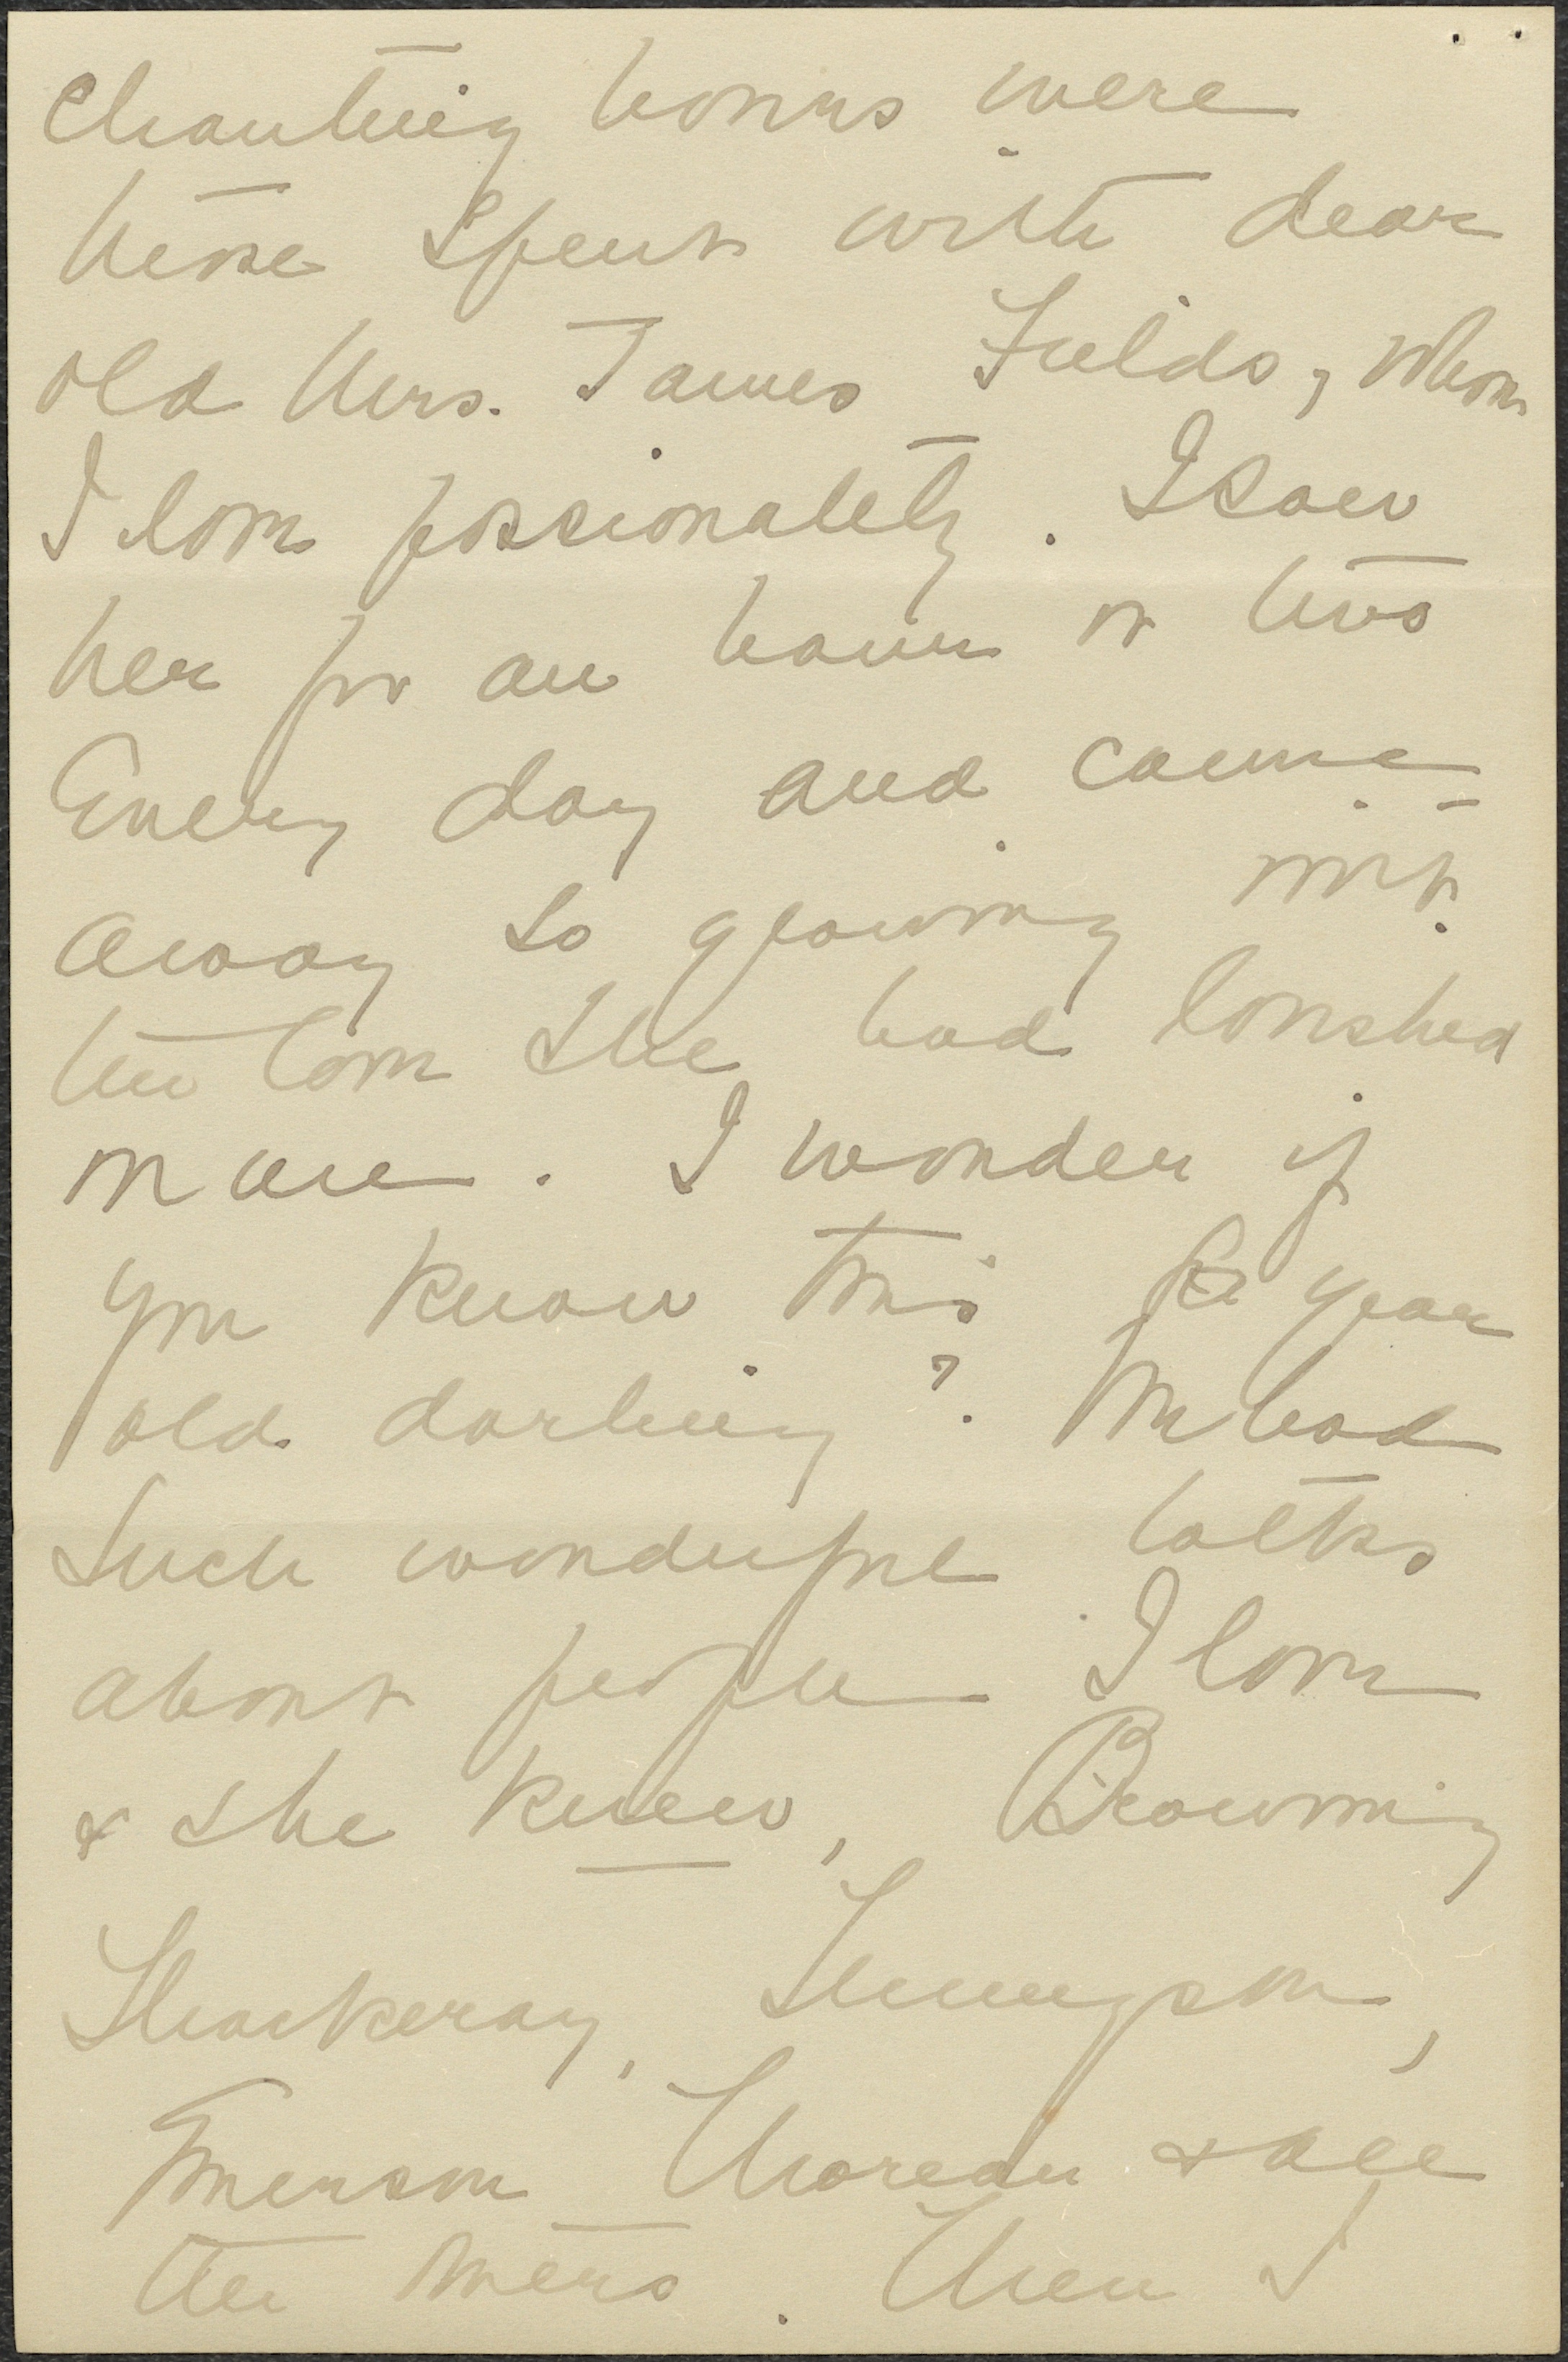 Chanting hours were
those spent with dear
old Mrs. James Fields, whom
I love passionately. I saw
her for an hour or two
Every day and came
away so glowing with
the love she had lavished
on me. I wonder if
you know this 80 year
old darling? We had
such wonderful talks
about people I love
& she knew, Browning
Thackeray, Tennyson,
Emerson Thoreau & all
the others. Then I